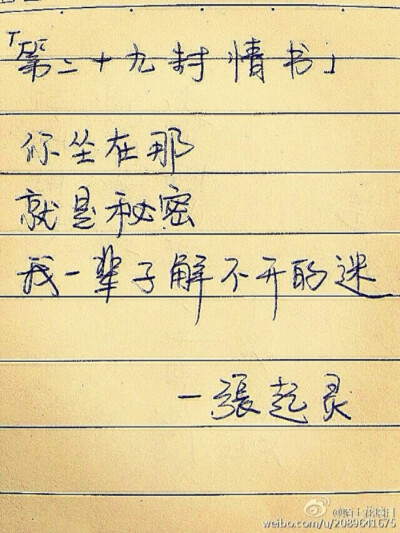 「第二十九封情书」
你坐在那
就是秘密
我一辈子解不开的迷
一張起灵
weibo.com/u/2089641675